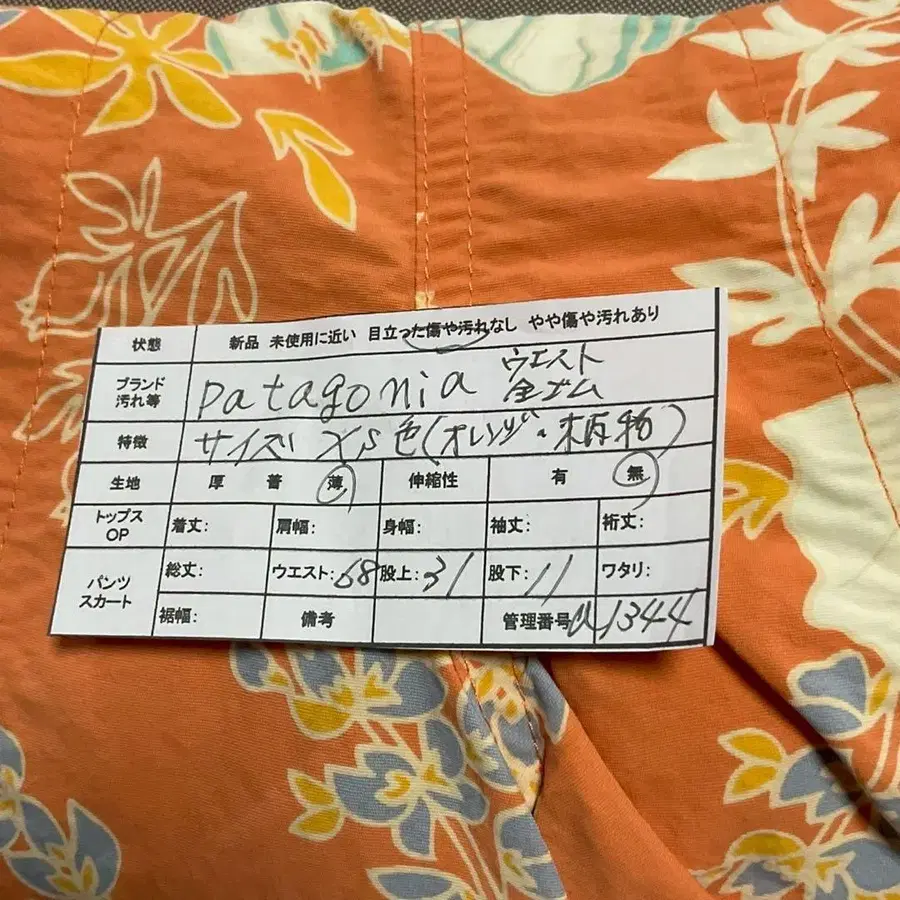 状態 新品 未使用に近い 目立った傷や汚れなし やや傷や汚れあり
ブランド 汚れ等 patagonia ウエスト 全ゴム
特徴 サイズ XS 色(オレンジ・柄物)
生地 厚 普 薄 伸縮性 有 無
トップス OP 着丈: 肩幅: 身幅: 袖丈: 裄丈:
パンツ スカート 総丈: ウエスト:68 股上:31 股下:11 ワタリ:
裾幅: 備考 管理番号 a1344